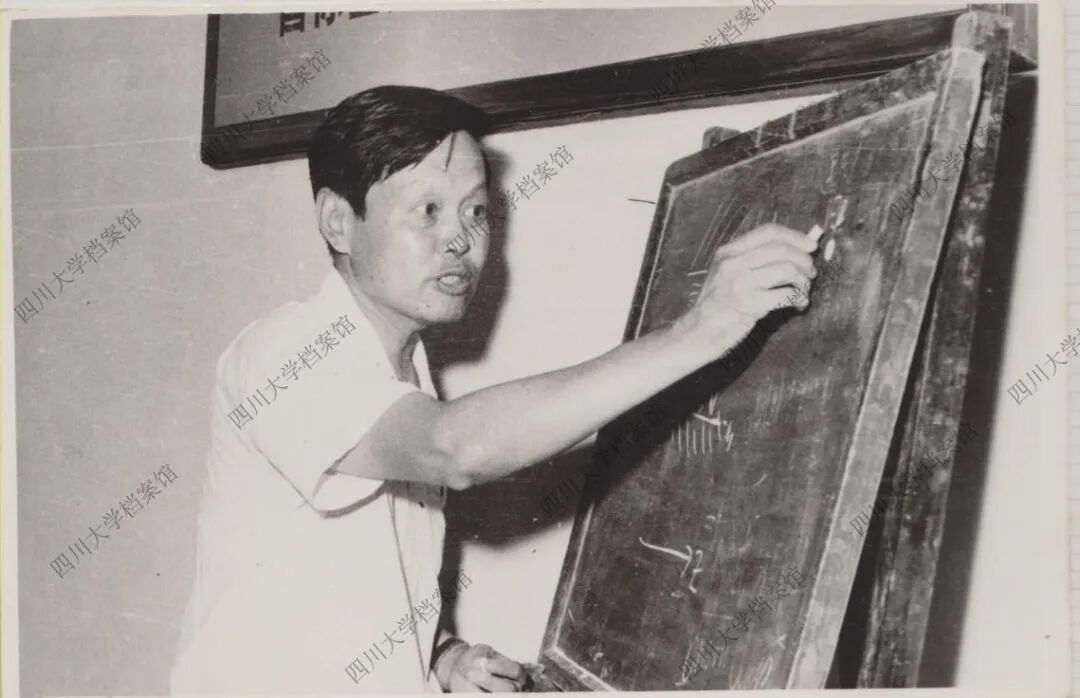 四川大学档案馆
四川大学档案馆
四川大学档案馆
四川大学档案馆
四川大学档案馆
四川大学档案馆
四川大学档案馆
四川大学档案馆
四川大学档案馆
四川大学档案馆
四川大学档案馆
四川大学档案馆
四川大学档案馆